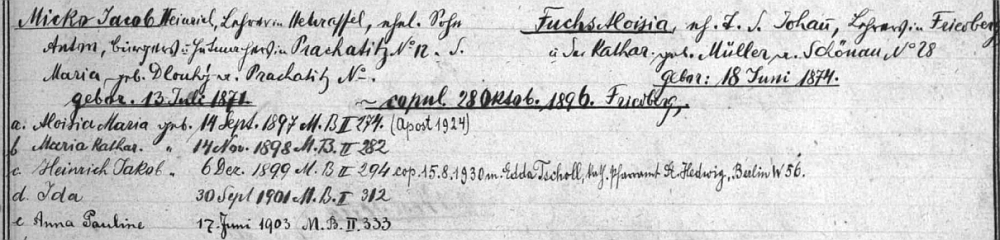 Micko Jacob Heinrich, Lehrer in , ehel. Sohn Fuchs Aloisia, eh. T. d. Johan, Lehrers in Friedberg
Anton, bürgers u. Hutmachers in Prachatitz No 12. u. der Kathar. geb. Müller a. Schönau No 28
Maria geb. Dlouhý a. Prachatitz No -. gebor: 18 Juni 1874.
gebor. 13. Juli 1871. ~ copul. 28 Oktob. 1896. Friedberg,
a. Aloisia Maria geb. 14 Sept. 1897 M.B II 274. (Apost 1924)
b Maria Kathar. " 14 Nov. 1898 M.B. II 282
c. Heinrich Jakob " 6 Dez. 1899 M.B II 294 cop. 15.8.1930 m. Edda Tscholl, kath. Pfarramt St. Hedwig, Berlin W 56.
d. Ida 30 Sept 1901 M.B. II 312
e Anna Pauline 17. Juni 1903 M.B. II. 333